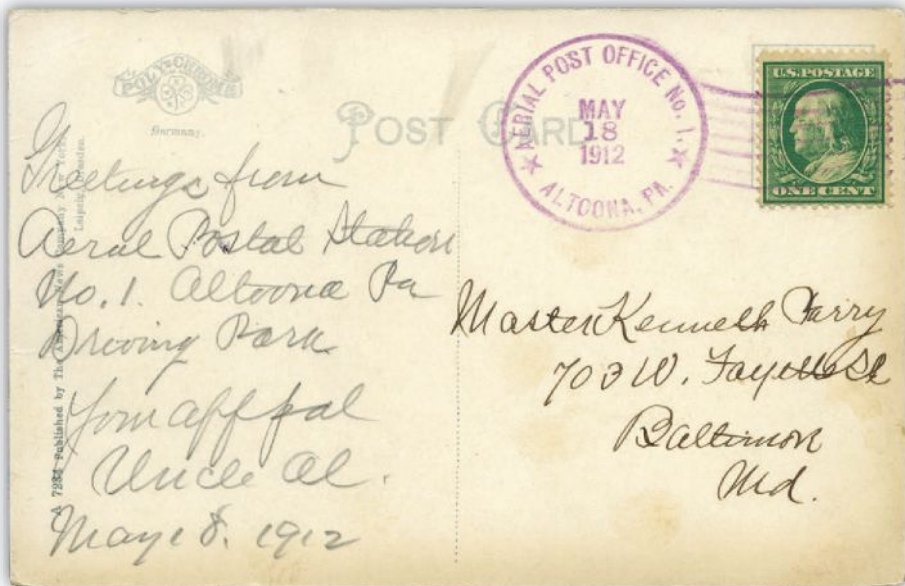 POLY-CHROME
Germany.
POST CARD
AERIAL POST OFFICE No. 1.
MAY
18
1912
ALTOONA, PA.
U.S. POSTAGE
ONE CENT
A 7288 Published by The American News Company New York
Leipzig, Dresden.
Greetings from
Aeral Postal Station
No. 1. Altoona Pa
Driving Park.
Your aff pal
Uncle Al.
May 18. 1912
Master Kenneth Parry
703 W. Fayette St
Baltimore
Md.